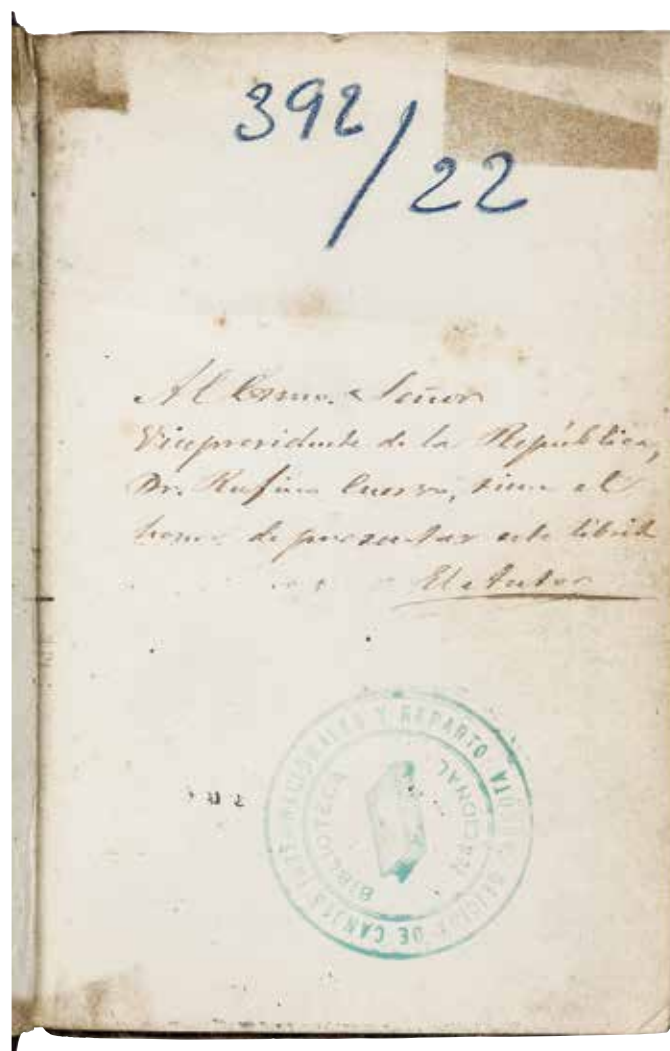 392/22
Al Exmo. Señor
Vicepresidente de la República,
Dr. Rufino Cuervo, tiene el
honor de presentar este librito
El Autor
OFICINA DE CANJES INTERNACIONALES Y REPARTO
BIBLIOTECA NACIONAL